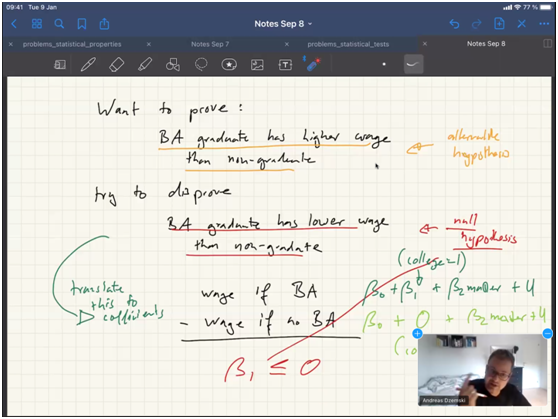 09:41 Tue 9 Jan
Notes Sep 8
problems_statistical_properties
Notes Sep 7
problems_statistical_tests
Notes Sep 8
Want to prove:
BA graduate has higher wage
than non-graduate
alternative
hypothesis
try to disprove
BA graduate has lower wage
than non-graduate
null
hypothesis
(college=1)
translate
this to
coefficients
wage if BA
β₀ + β₁ + β₂ master + U
- wage if no BA
β₀ + 0 + β₂ master + U
β₁ ≤ 0
Andreas Dzemski